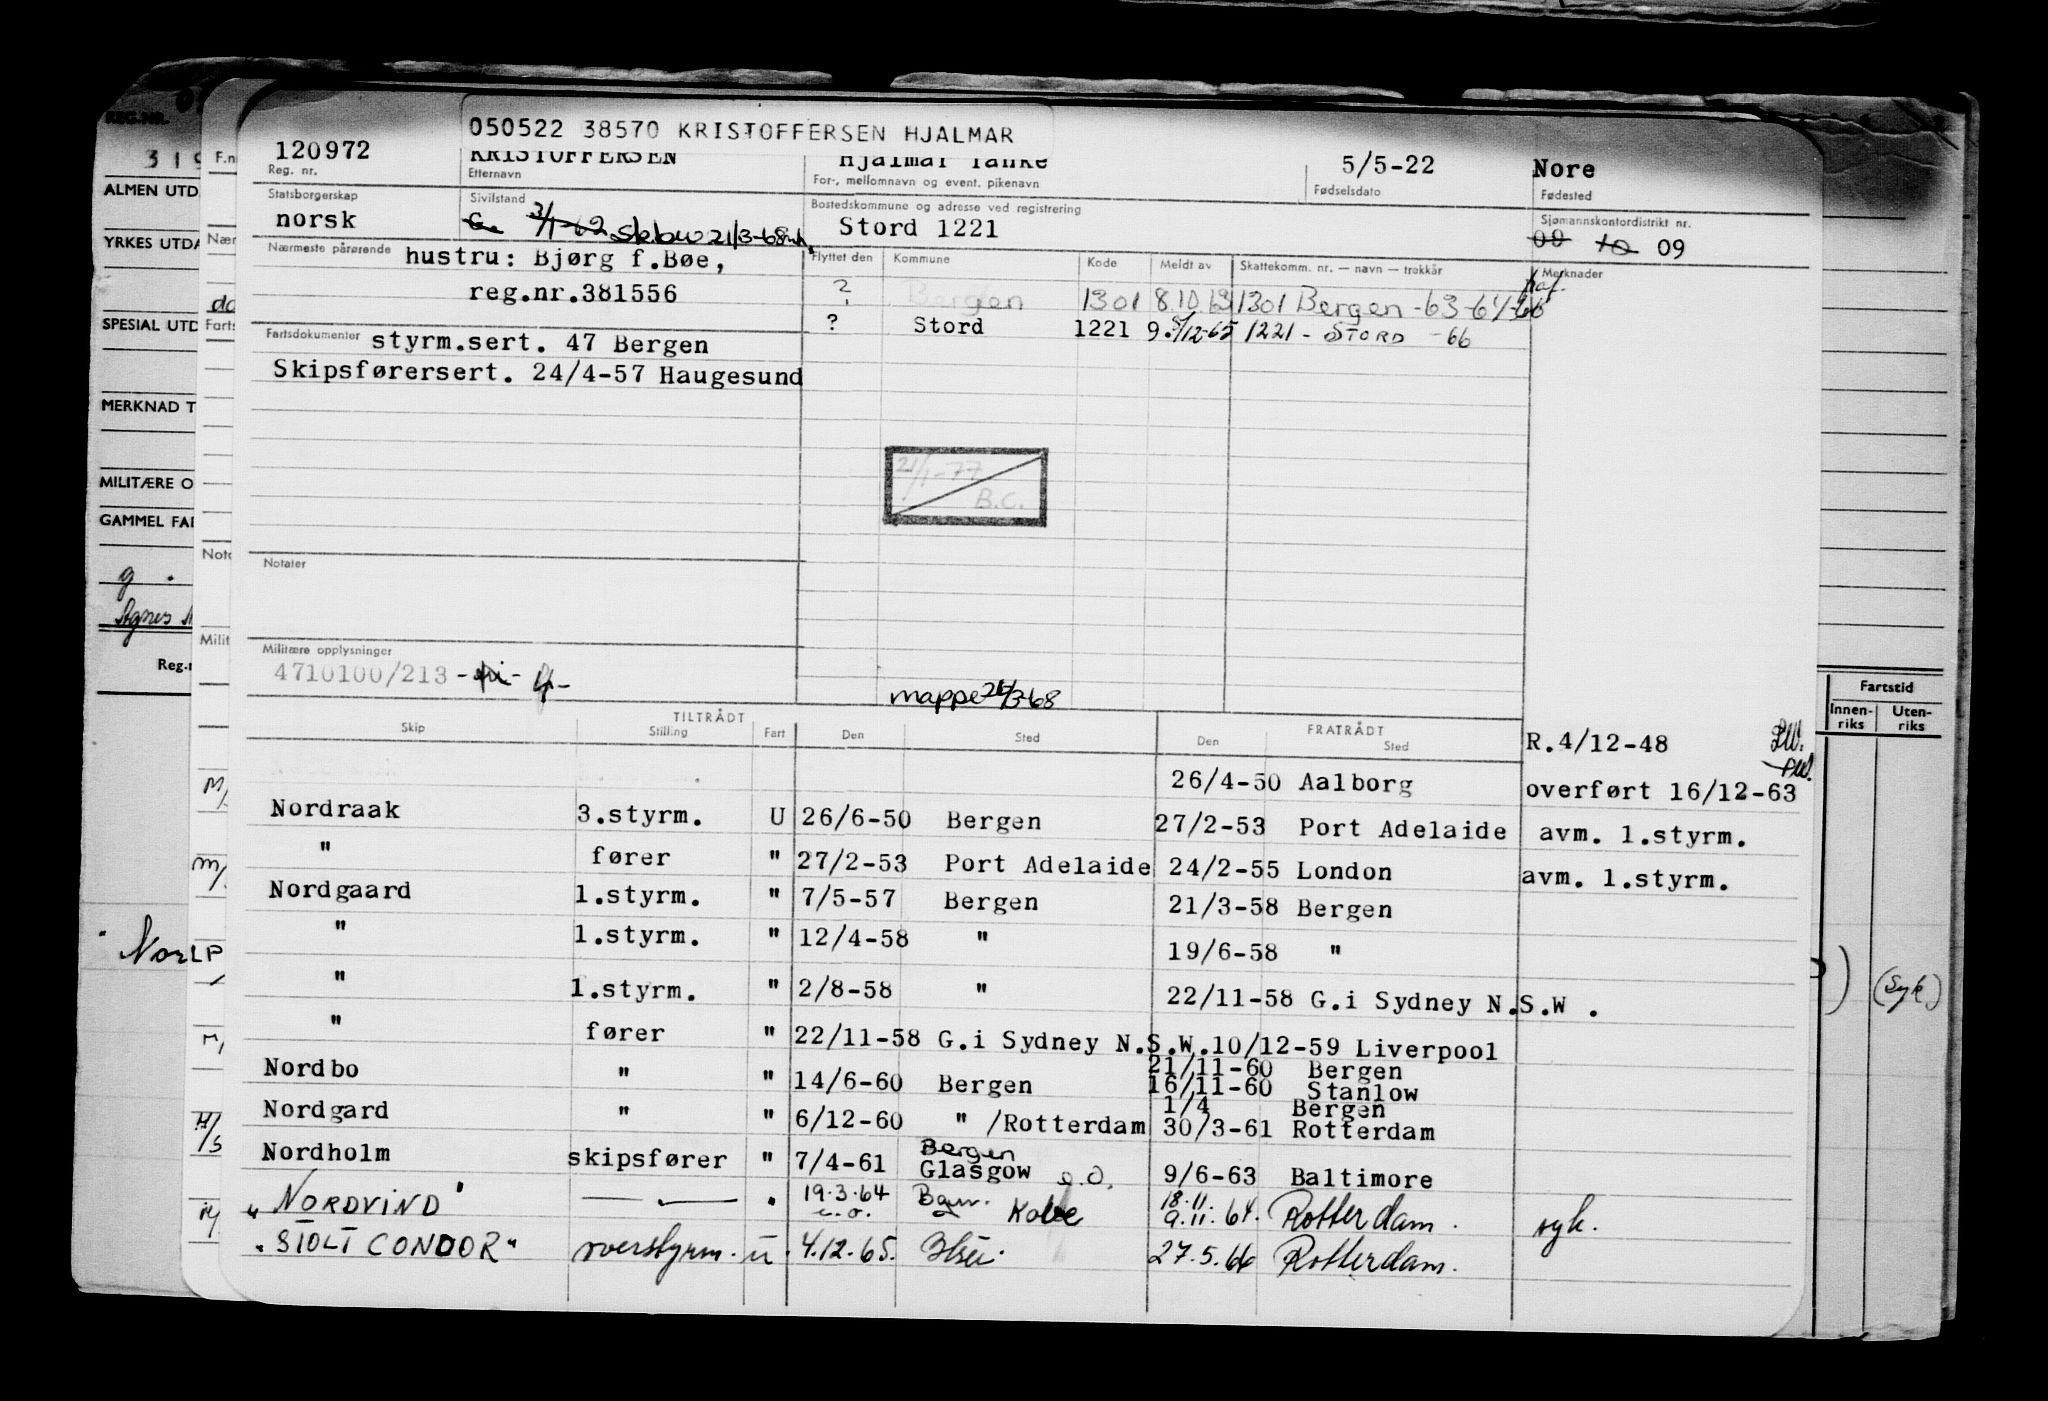 050522 38570 KRISTOFFERSEN HJALMAR
120972 KRISTOFFERSEN Hjalmar Tanke 5/5-22 Nore
Reg. nr. Etternavn For-, mellomnavn og event. pikenavn Fødselsdato Fødested
Statsborgerskap Sivilstand Bostedskommune og adresse ved registrering Sjømannskontordistrikt nr.
norsk G. 3/1-62 21/3-68 Stord 1221 09 10 09
Nærmeste pårørende hustru: Bjørg f.Bøe, Flyttet den Kommune Kode Meldt av Skattekomm. nr. — navn — trekkår Merknader
reg.nr.381556 ? Bergen 1301 8.10.63 1301 Bergen -63-64-65
? Stord 1221 9. 1221 - STORD -66
Fartsdokumenter styrm.sert. 47 Bergen
Skipsførersert. 24/4-57 Haugesund
21/1-77
B.C.
Notater
Militære opplysninger
4710100/213
mappe 21/3-68
TILTRÅDT FRATRÅDT
Skip Stilling Fart Den Sted Den Sted R.4/12-48
26/4-50 Aalborg overført 16/12-63
Nordraak 3.styrm. U 26/6-50 Bergen 27/2-53 Port Adelaide avm. 1.styrm.
" fører " 27/2-53 Port Adelaide 24/2-55 London avm. 1.styrm.
Nordgaard 1.styrm. " 7/5-57 Bergen 21/3-58 Bergen
" 1.styrm. " 12/4-58 " 19/6-58 "
" 1.styrm. " 2/8-58 " 22/11-58 G.i Sydney N.S.W .
" fører " 22/11-58 G.i Sydney N.S.W. 10/12-59 Liverpool
21/11-60 Bergen
Nordbo " " 14/6-60 Bergen 16/11-60 Stanlow
1/4 Bergen
Nordgard " " 6/12-60 " /Rotterdam 30/3-61 Rotterdam
Bergen
Nordholm skipsfører " 7/4-61 Glasgow e.o. 9/6-63 Baltimore
19.3.64 Bgn. 18.11.
"NORDVIND" — " — " e.o. Kobe 9.11.64. Rotterdam. syk.
"STOLT CONDOR" overstyrm. u. 4.12.65. 27.5.66 Rotterdam.
REG.NR.
ALMEN UTD.
YRKES UTDA
SPESIAL UTD
MERKNAD T
MILITÆRE O
GAMMEL FAR
Agnes
Reg.n
F.n
Nær
Farts
Nota
Milit
Fartstid
Innen-
riks
Uten-
riks
(Syk)